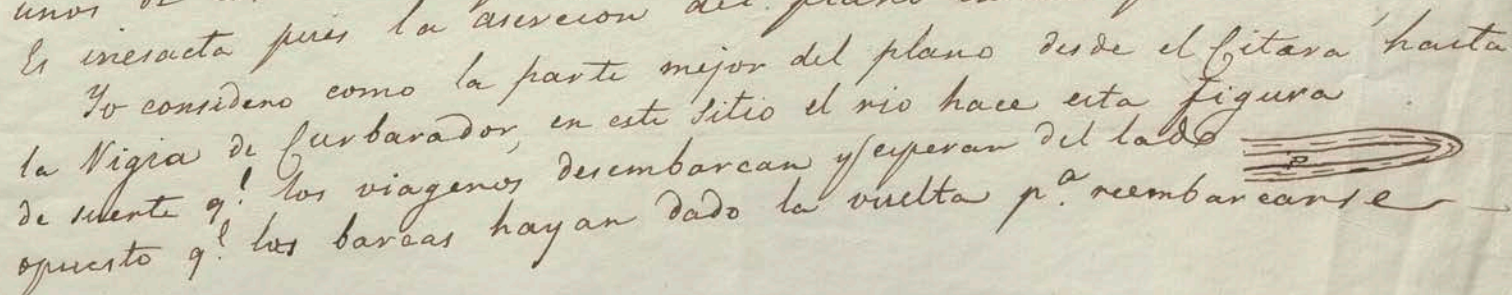 unos de
Es inesacta pues la asercion del plano en
Yo considero como la parte mejor del plano desde el Citara hasta
la Vigia de Curbarador, en este sitio el rio hace esta figura
de suerte q.e los viageros desembarcan y esperan del lado
P
opuesto q.e las barcas hayan dado la vuelta p.a reembarcarse